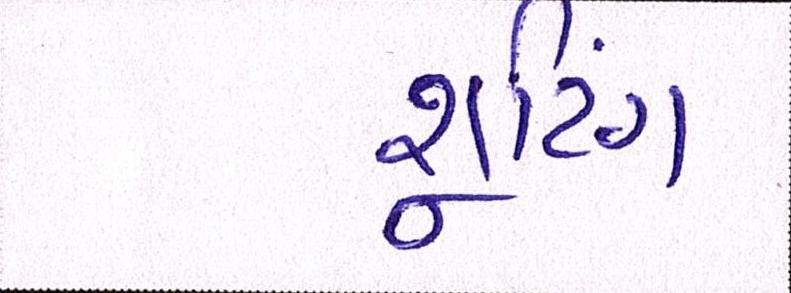 શૂટિંગ